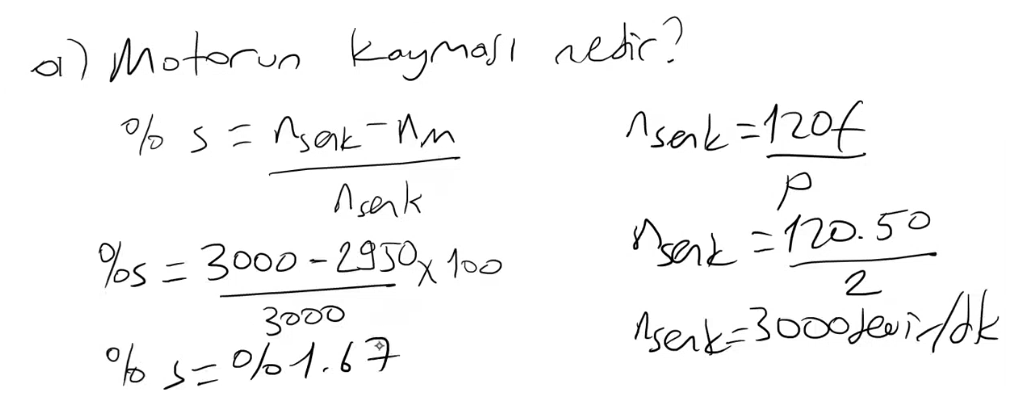 a) Motorun kayması nedir?
% s = nsenk - nm / nsenk
%s = 3000 - 2950 / 3000 x 100
% s = %1.67
nsenk = 120f / p
nsenk = 120.50 / 2
nsenk = 3000 devir/dk